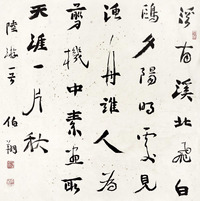 溪南溪北飛白
鷗夕陽明處見
漁舟誰人為
剪機中素畫取
天涯一片秋
陸游一首 伯翔